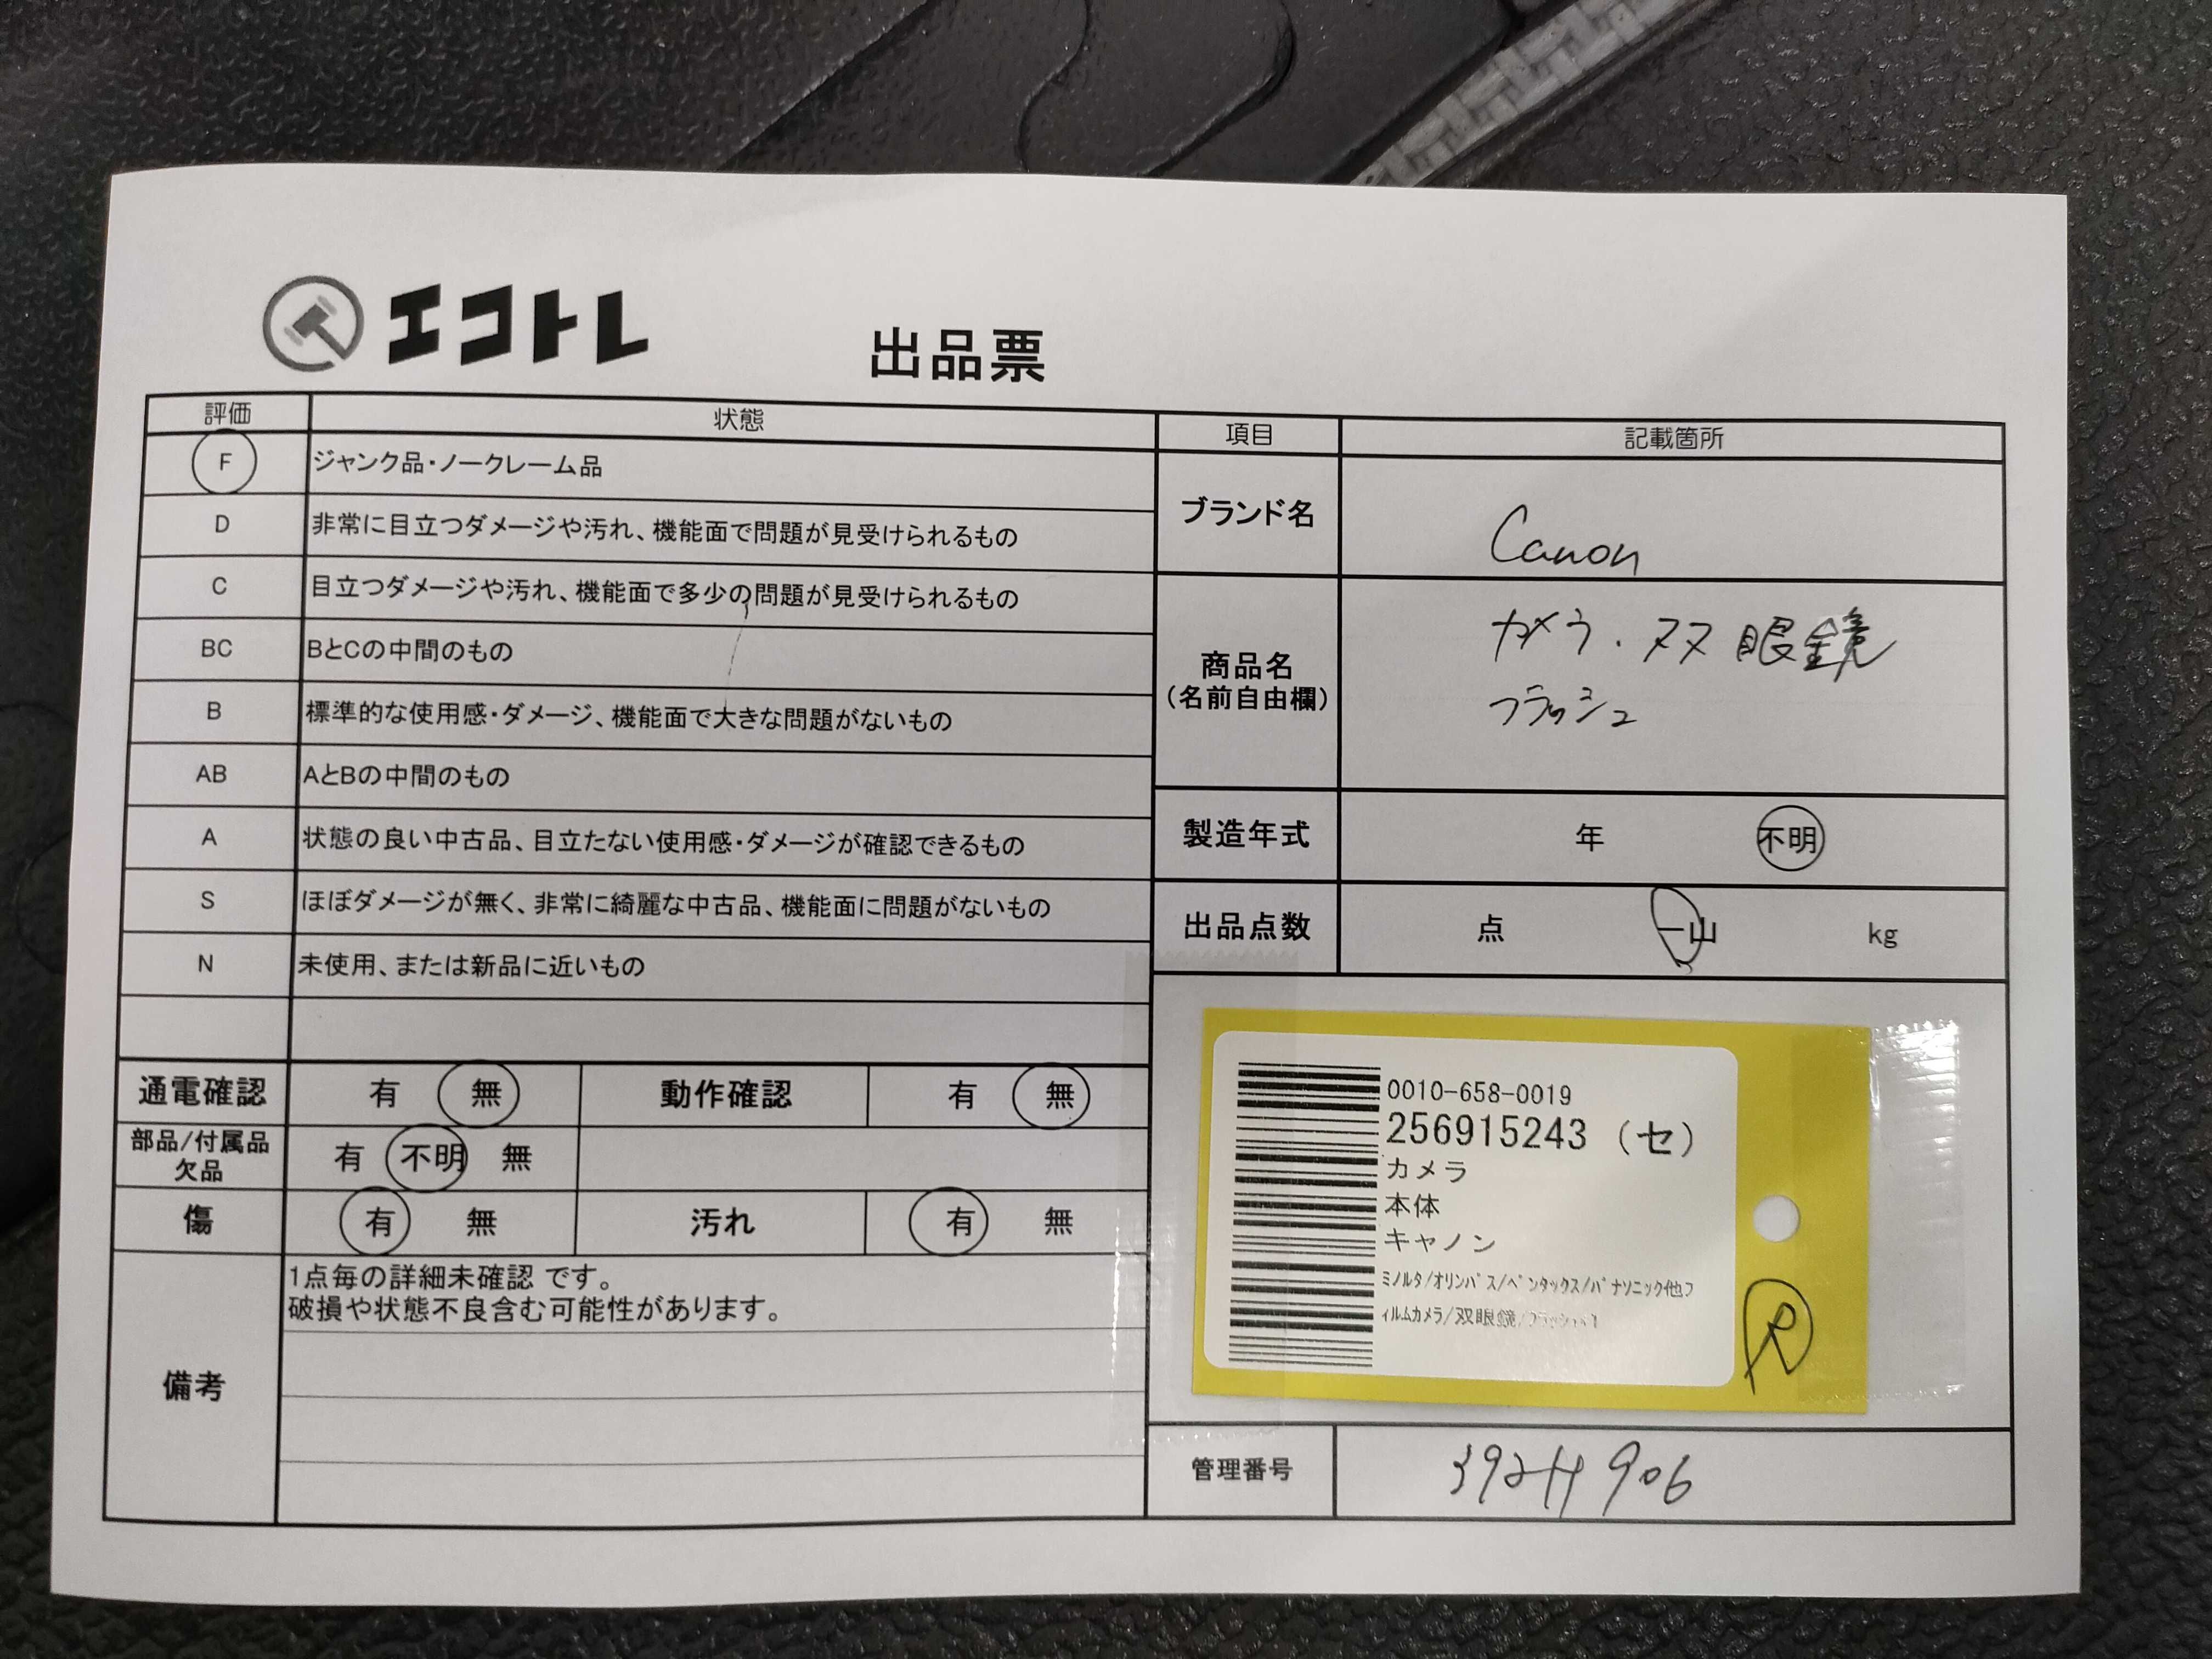 エコトレ
出品票
評価 状態
F ジャンク品・ノークレーム品
D 非常に目立つダメージや汚れ、機能面で問題が見受けられるもの
C 目立つダメージや汚れ、機能面で多少の問題が見受けられるもの
BC BとCの中間のもの
B 標準的な使用感・ダメージ、機能面で大きな問題がないもの
AB AとBの中間のもの
A 状態の良い中古品、目立たない使用感・ダメージが確認できるもの
S ほぼダメージが無く、非常に綺麗な中古品、機能面に問題がないもの
N 未使用、または新品に近いもの
通電確認 有 無 動作確認 有 無
部品/付属品
欠品 有 不明 無
傷 有 無 汚れ 有 無
備考
1点毎の詳細未確認 です。
破損や状態不良含む可能性があります。
項目 記載箇所
ブランド名 Canon
商品名
(名前自由欄)
カメラ・双眼鏡
フラッシュ
製造年式 年 不明
出品点数 点 一山 kg
0010-658-0019
256915243 (セ)
カメラ
本体
キャノン
ミノルタ/オリンパス/ペンタックス/パナソニック他フ
ィルムカメラ/双眼鏡/
R
管理番号